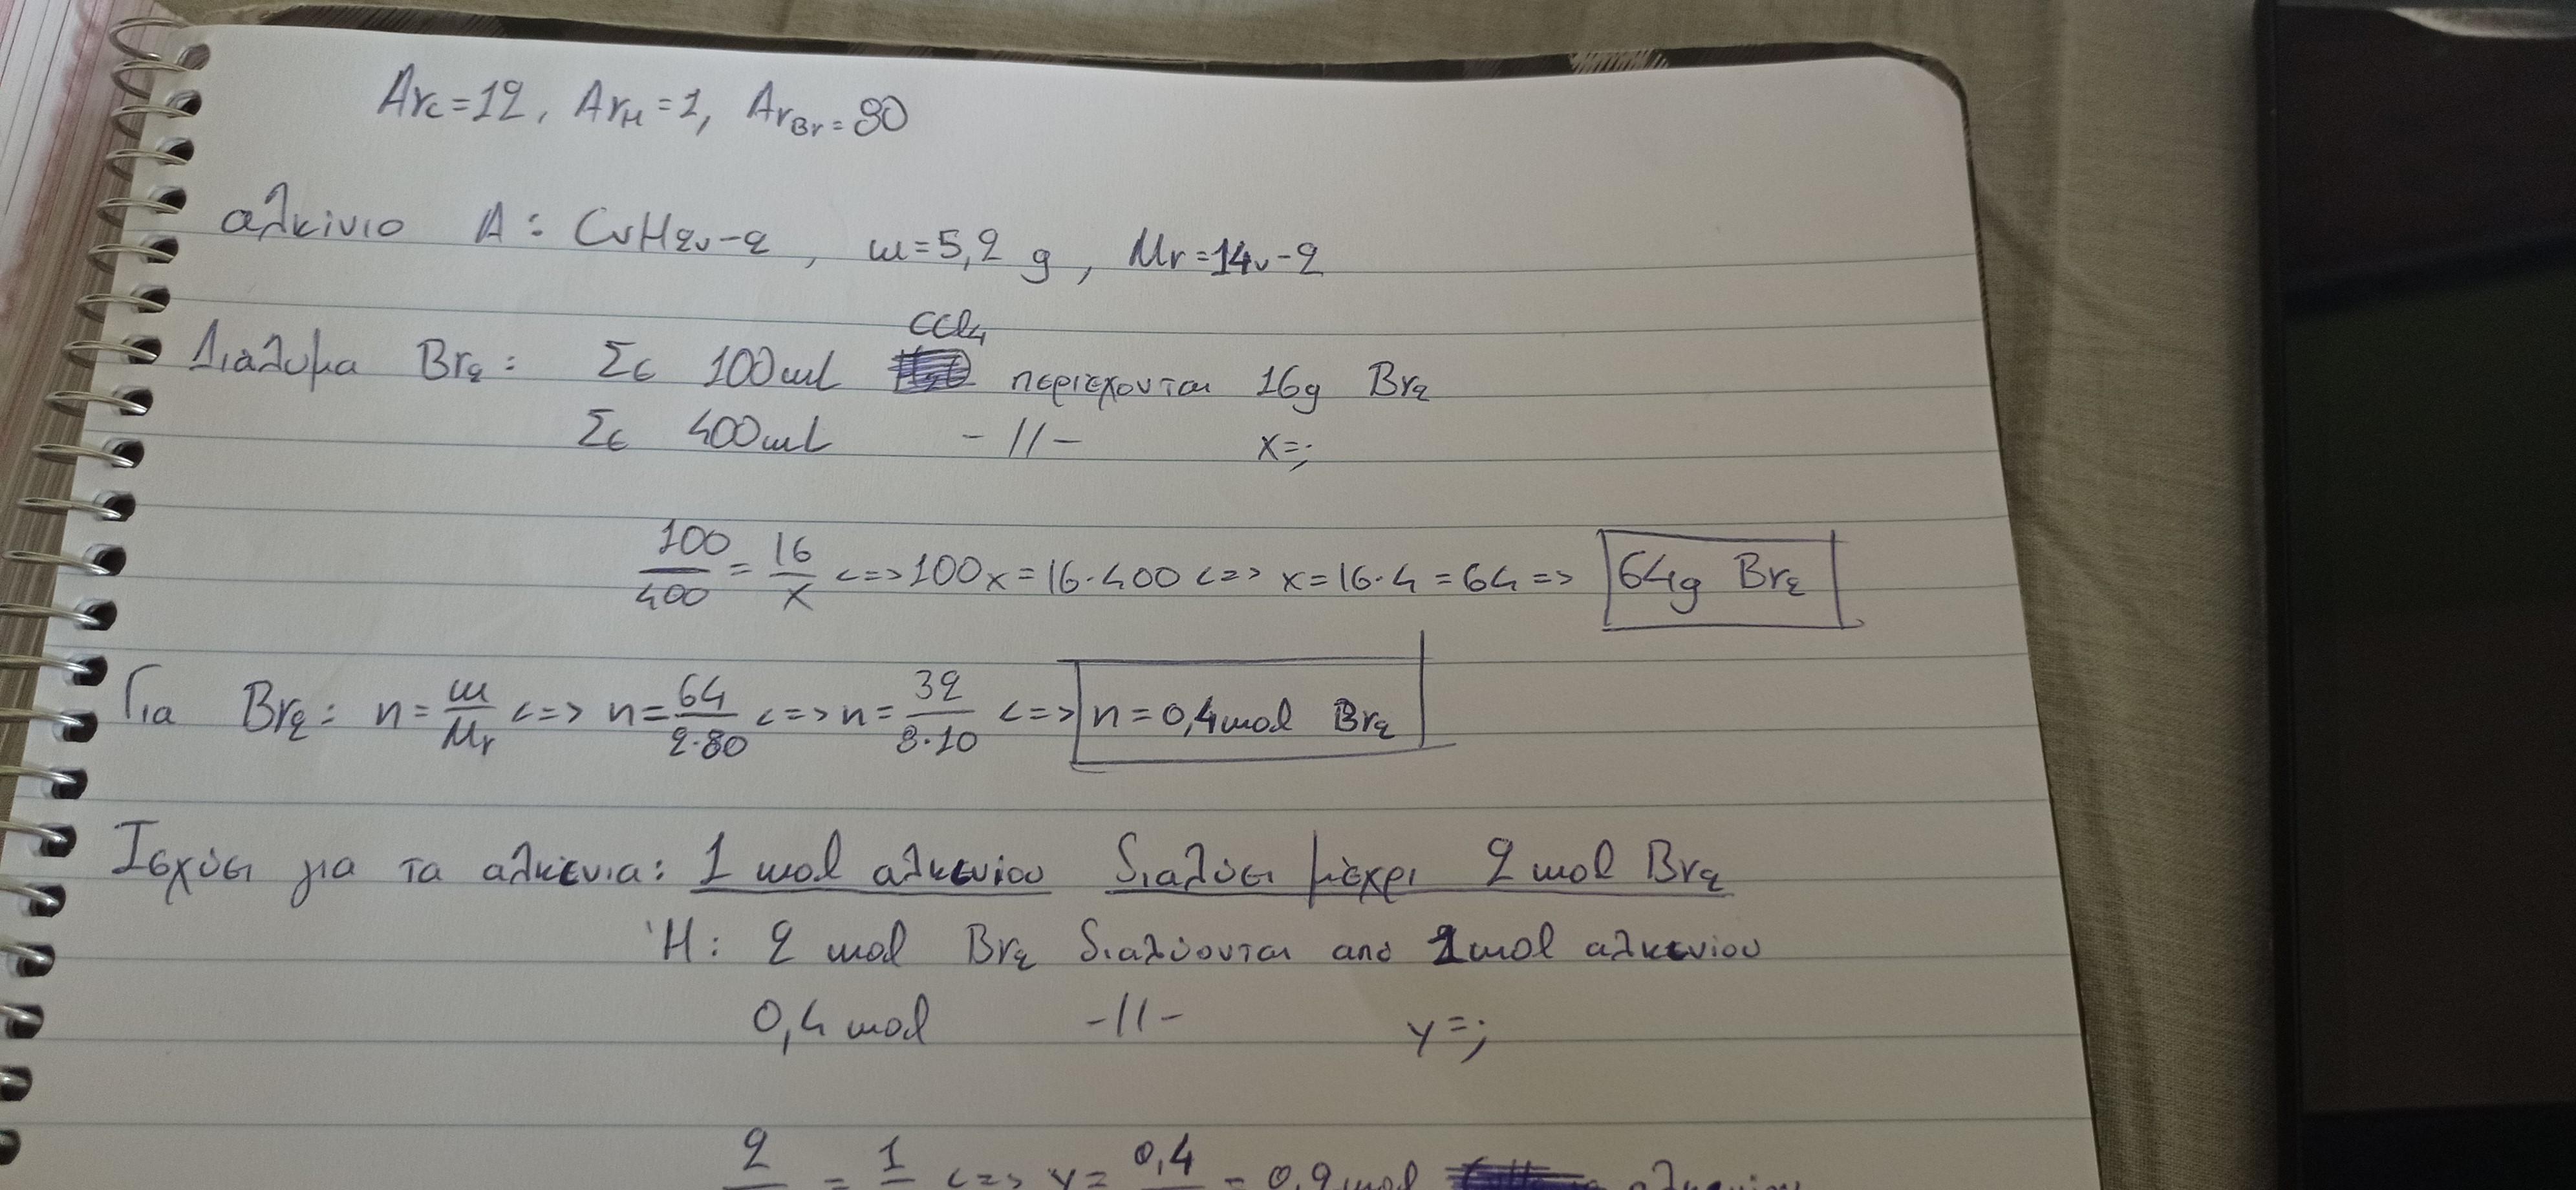 Ar_C=12, Ar_H=1, Ar_Br=80
αλκίνιο A: CνH2ν-2, m=5,2 g, Mr=14ν-2
Διάλυμα Br2: Σε 100mL CCl4 περιέχονται 16g Br2
Σε 400mL -//- x=;
100/400 = 16/x <=> 100x=16·400 <=> x=16·4=64 => 64g Br2
Για Br2: n=m/Mr <=> n=64/2·80 <=> n=32/8·10 <=> n=0,4mol Br2
Ισχύει για τα αλκένια: 1 mol αλκενίου διαλύει μέχρι 2 mol Br2
Ή: 2 mol Br2 διαλύονται από 1mol αλκενίου
0,4 mol -//- y=;
2 = 1 <=> y= 0,4 = 0,2mol